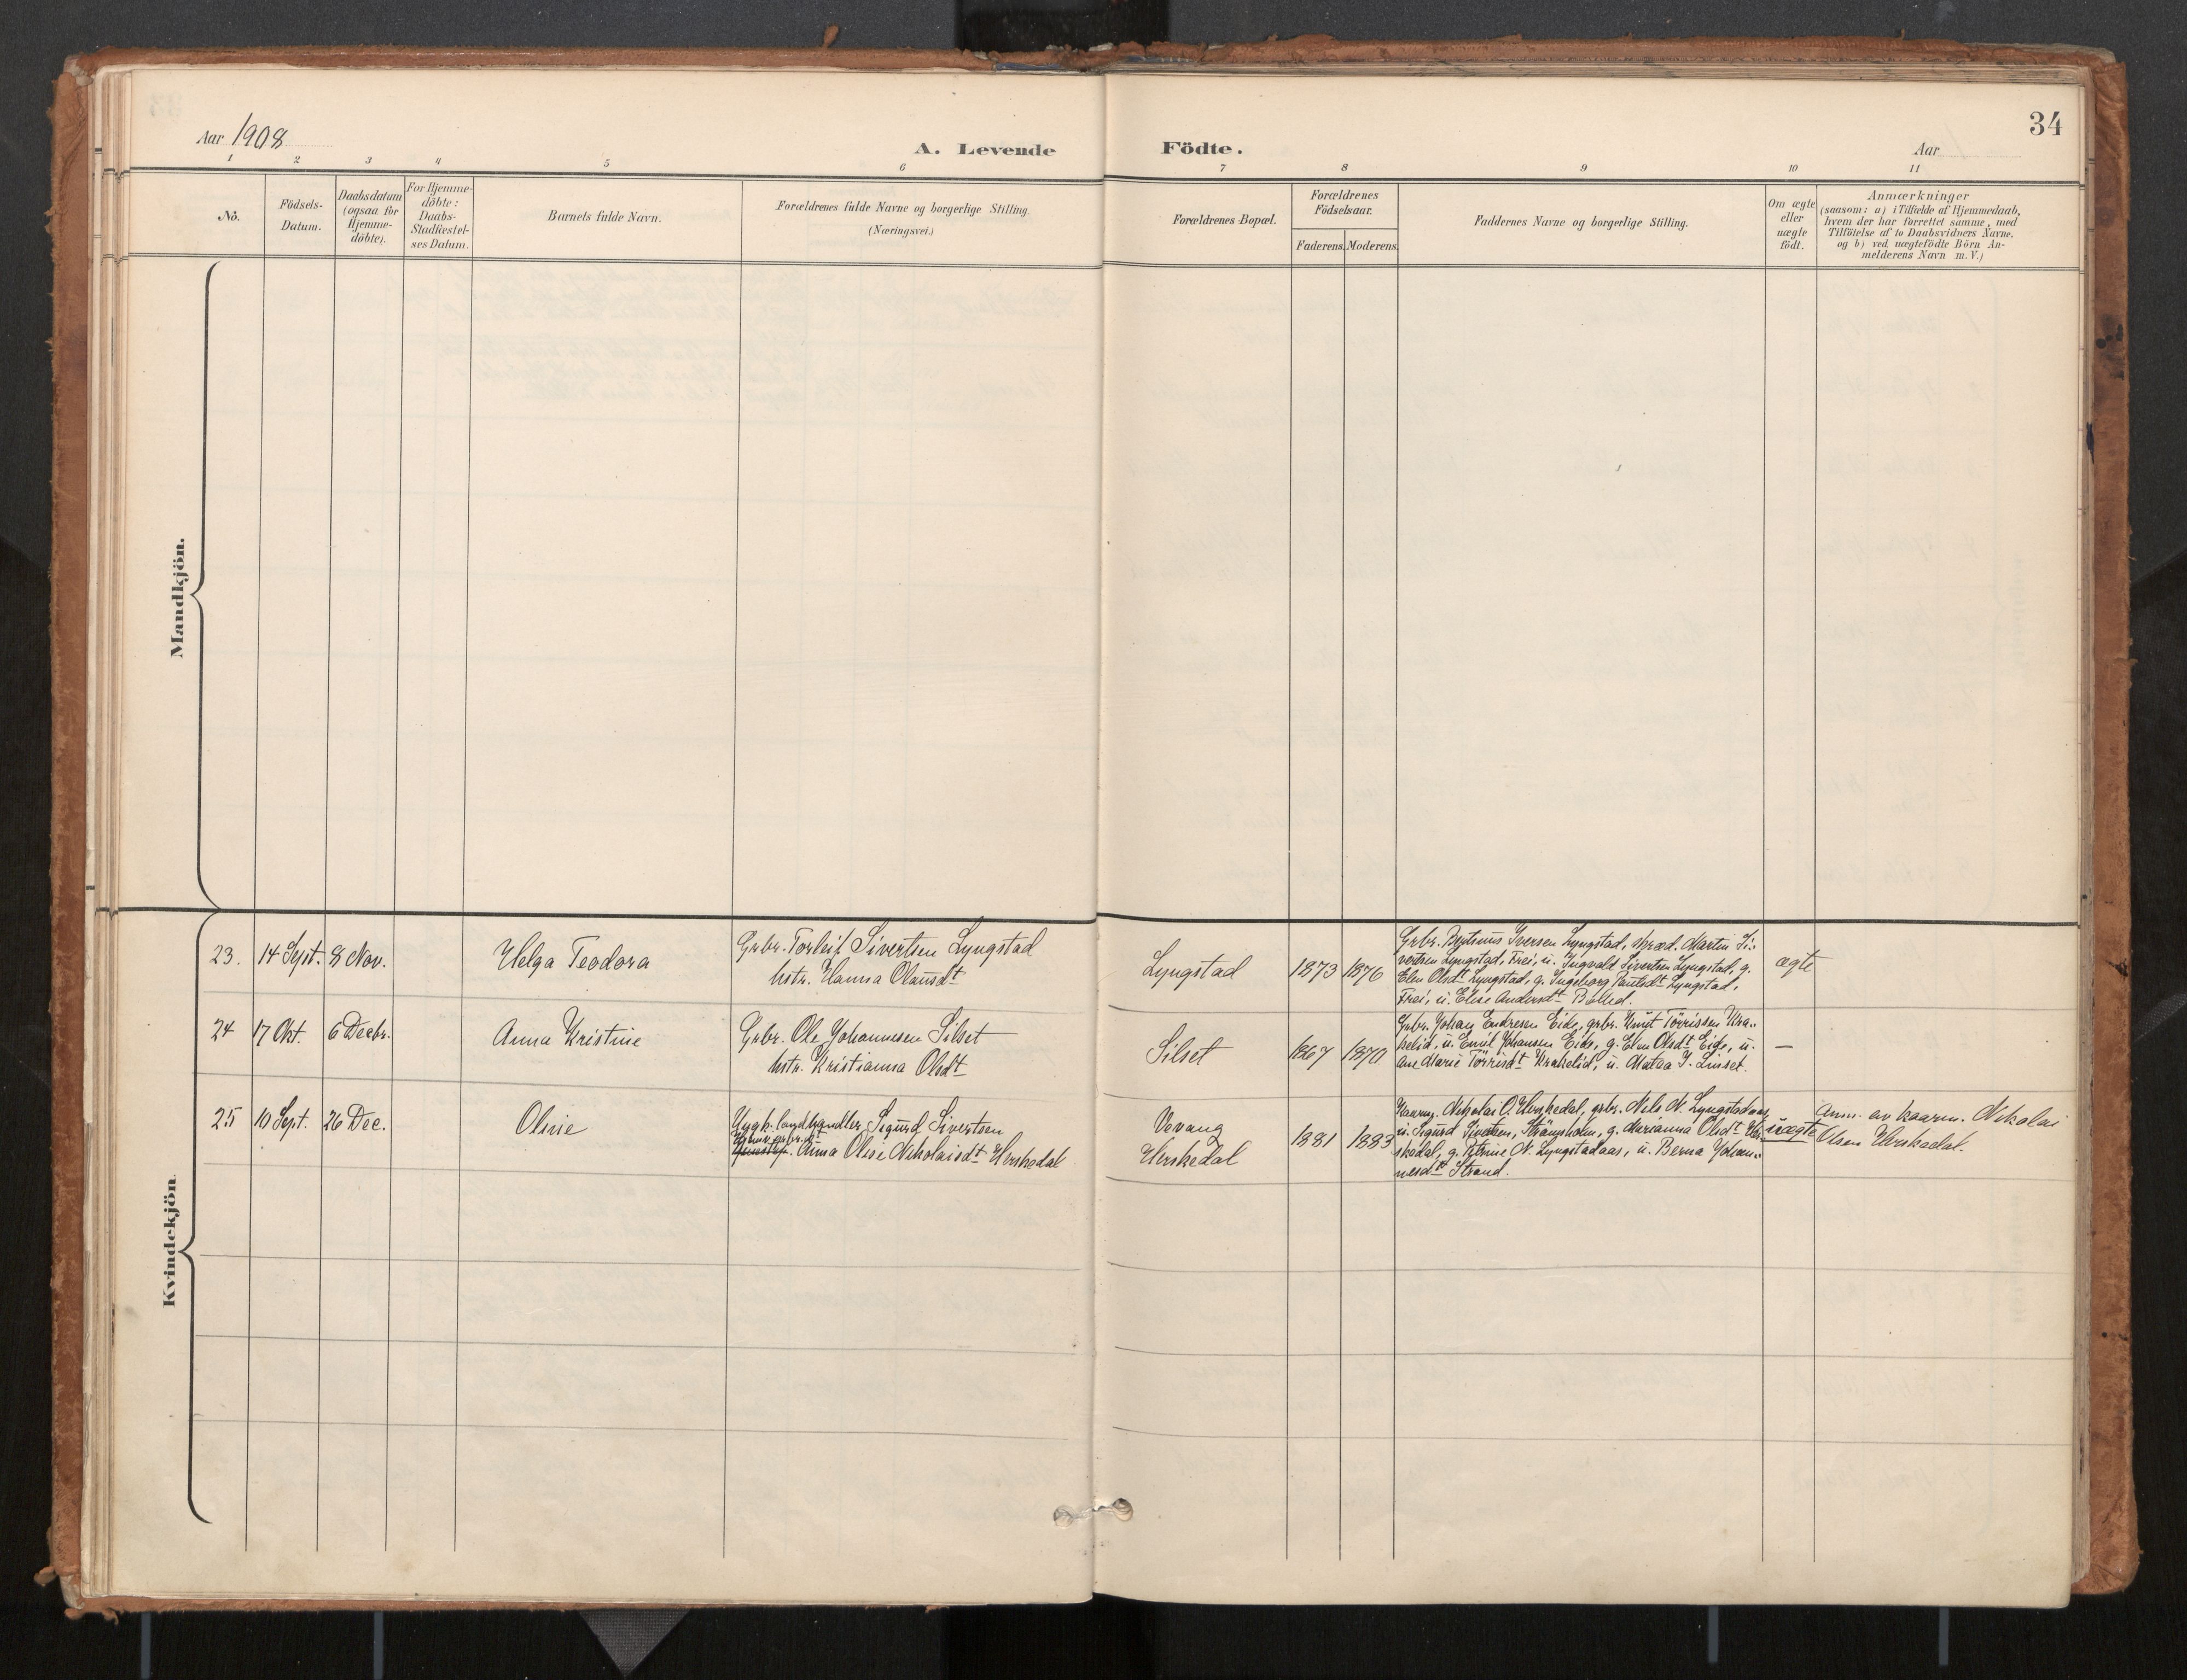 34
Aar 1908
A. Levende Födte.
Aar
1 2 3 4 5 6 7 8 9 10 11
No.
Födsels-
Datum.
Daabsdatum
(ogsaa for
Hjemme-
döbte).
For Hjemme-
döbte:
Daabs-
Stadfæstel-
ses Datum.
Barnets fulde Navn.
Forældrenes fulde Navne og borgerlige Stilling.
(Næringsvei.)
Forældrenes Bopæl.
Forældrenes
Födselsaar.
Faderens. Moderens.
Faddernes Navne og borgerlige Stilling.
Om ægte
eller
uægte
födt.
Anmærkninger
(saasom: a) i Tilfælde af Hjemmedaab,
hvem der har forrettet samme, med
Tilföielse af to Daabsvidners Navne.
og b) ved uægtefödte Börn An-
melderens Navn m. V.)
Mandkjön.
Kvindekjön.
23. 14 Sept. 8 Nov. Helga Teodora
Grbr. Torleif Sivertsen Lyngstad
hstr. Hanna Olausdt
Lyngstad 1873 1876
Grbr. Iversen Lyngstad, Martin Si-
vertsen Lyngstad, Frei, u. Ingvald Sivertsen Lyngstad, g.
Elen Olsdt Lyngstad, g. Ingeborg Paulsdt Lyngstad,
Frei, u. Elise Andersdt
ægte
24 17 Okt. 6 Decbr. Anna Kristine
Grbr. Ole Johannesen Silset
hstr. Kristianna Olsdt
Silset 1867 1870
Grbr. Johan Endresen Eide, grbr. Knut Törrissen Kra-
kelid, u. Emil Johansen Eide, g. Elen Olsdt Eide, u.
Ane Marie Törrisdt Krakelid, u. Matea J. Linset.
—
25 10 Sept. 26 Dec. Olivie
Ungk. landhandler Sigurd Sivertsen
Anna Olise Nikolaisdt Herskedal
Vevang
Herskedal
1881 1883
Kaarm. Nikolai O. Herskedal, grbr. Nils N. Lyngstadaas,
u. Sigurd Sivertsen, Strömsholm, g. Marianna Olsdt Her-
skedal, g. Petrine N. Lyngstadaas, u. Berna Johan-
nesdt Strand.
uægte
Anm. av kaarm. Nikolai
Olsen Herskedal.